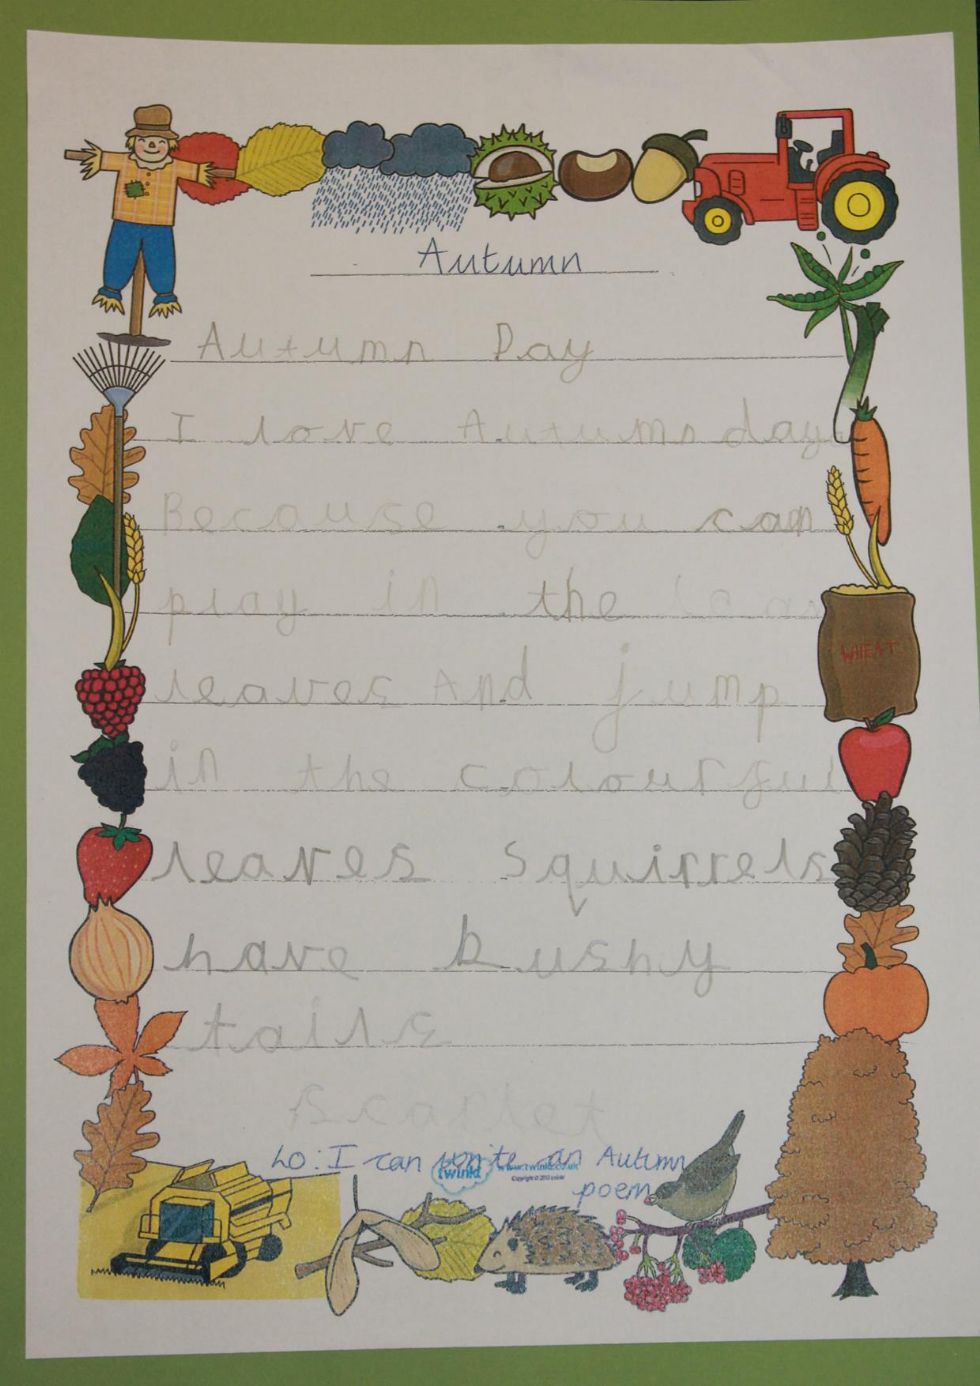 Autumn
Autumn Day
I love Autumn day
Because you can
play in the
leaves And jump
in the colourful
leaves Squirrels
have bushy
tails
Scarlet
Lo: I can write an Autumn
poem
twinkl www.twinkl.co.uk
WHEAT